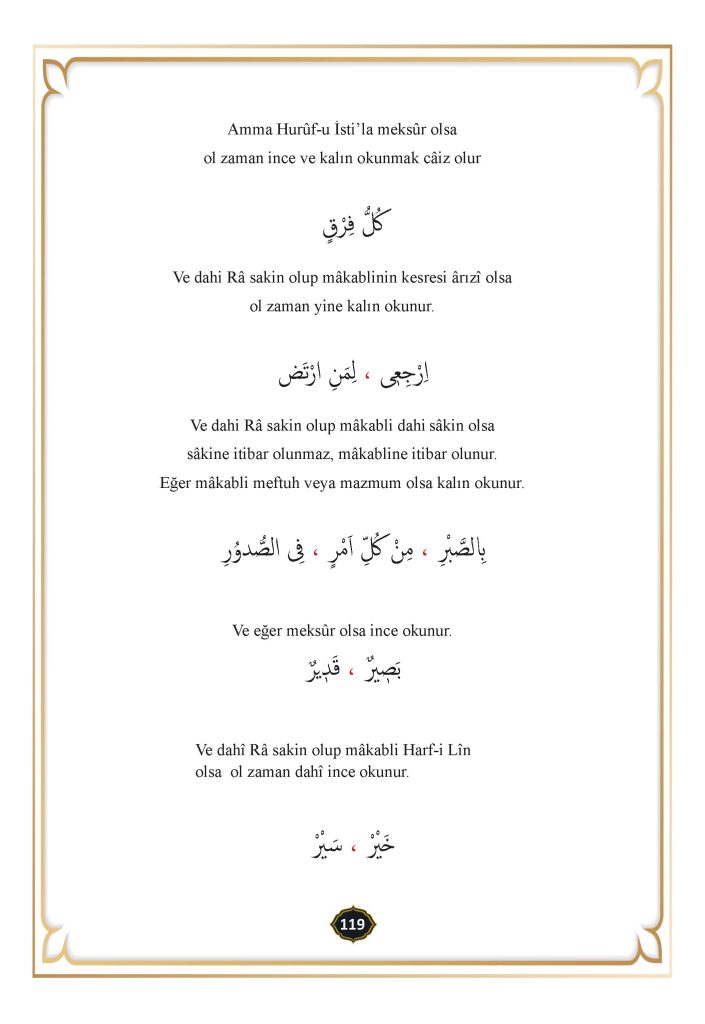 Amma Hurûf-u İsti’la meksûr olsa
ol zaman ince ve kalın okunmak câiz olur
كُلُّ فِرْقٍ
Ve dahi Râ sakin olup mâkablinin kesresi ârızî olsa
ol zaman yine kalın okunur.
اِرْجِعٖى ، لِمَنِ ارْتَضٰ
Ve dahi Râ sakin olup mâkabli dahi sâkin olsa
sâkine itibar olunmaz, mâkabline itibar olunur.
Eğer mâkabli meftuh veya mazmum olsa kalın okunur.
بِالصَّبْرِ ، مِنْ كُلِّ اَمْرٍ ، فِى الصُّدوُرِ
Ve eğer meksûr olsa ince okunur.
بَصٖيرٌ ، قَدٖيرٌ
Ve dahî Râ sakin olup mâkabli Harf-i Lîn
olsa ol zaman dahî ince okunur.
خَيْرْ ، سَيْرْ
119